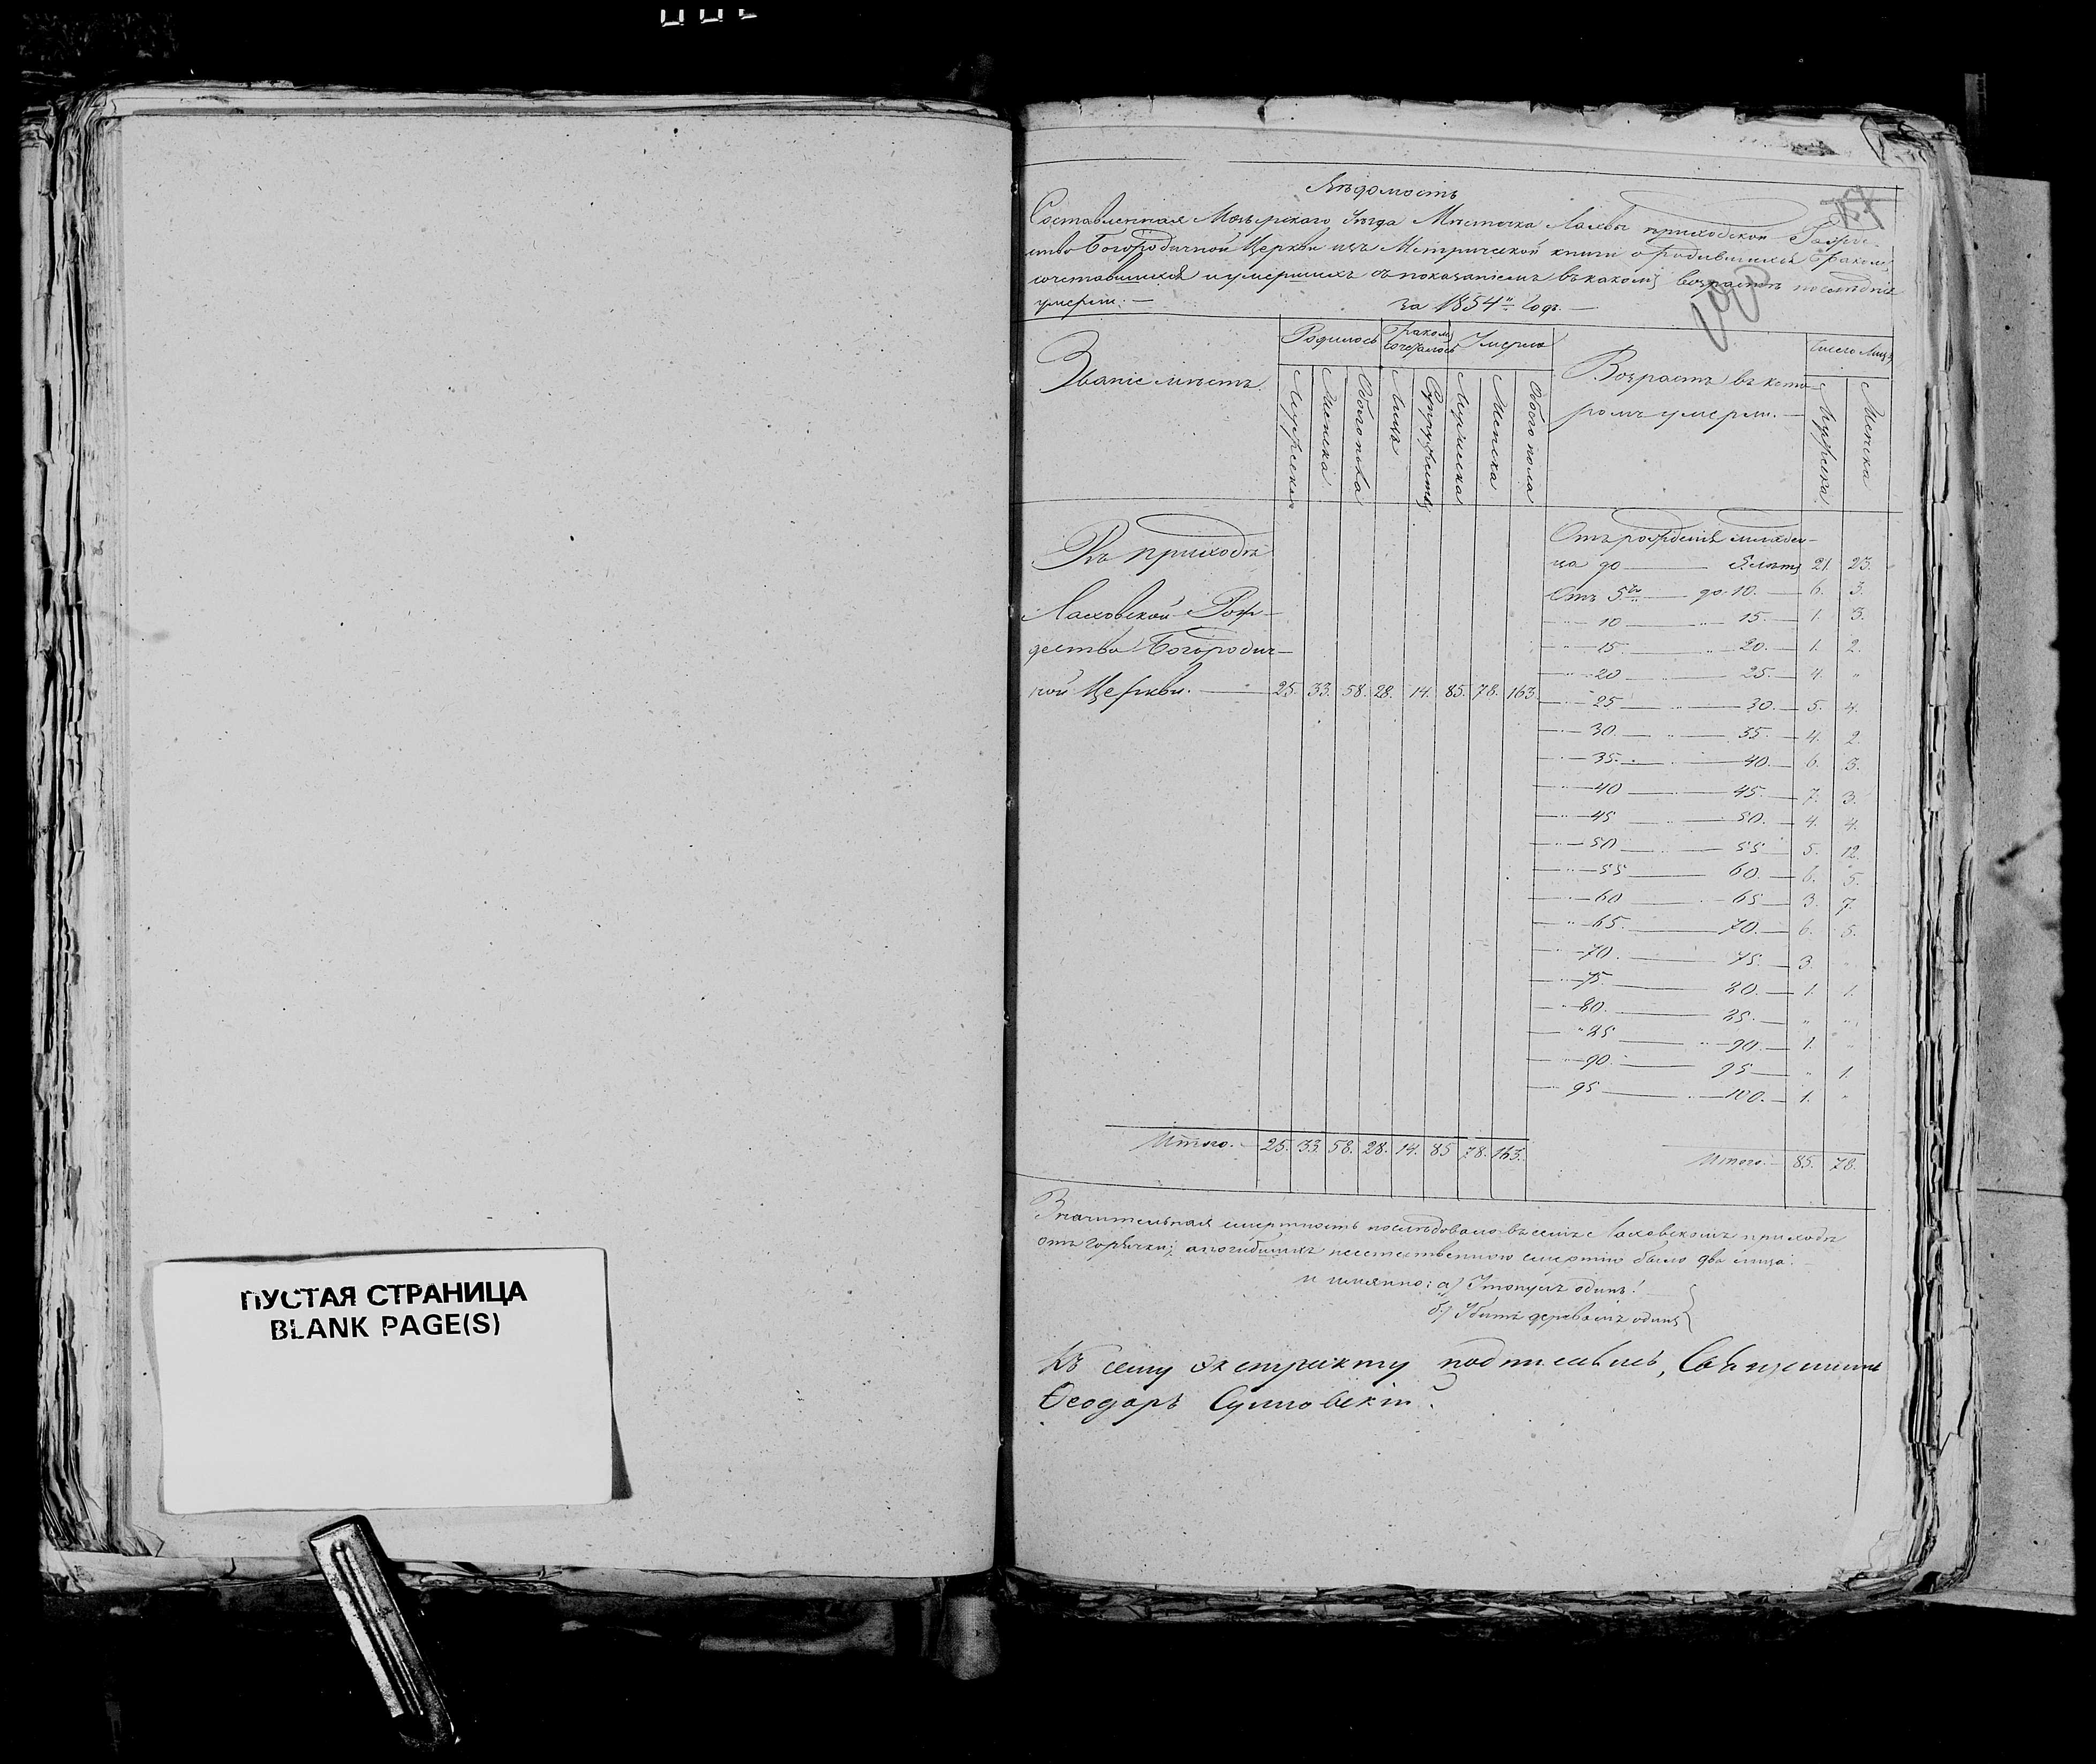 ПУСТАЯ СТРАНИЦА
BLANK PAGE(S)
Вѣдомость
Составленная Мозырскаго Уѣзда Мѣстечка Лахвы приходской Рожде-
ство Богородичной Церкви изъ Метрической книги о родившихся бракомъ
сочетавшихся и умершихъ съ показаніемъ въ какомъ возрастѣ послѣдніе
умерли: — за 1854й Годъ. —
Званіе мѣстъ.
Родилось
Бракомъ сочеталось
Умерло
Возрастъ въ кото-
ромъ умерли. —
Число Лицъ
Мужеска
Женска
Обоего пола
Лицъ
Супружествъ
Мужеска
Женска
Обоего пола
Мужеска
Женска
Въ приходѣ
Лаховской Рож-
дество Богородич-
ной Церкви. — 25. 33. 58. 28. 14. 85. 78. 163.
Отъ рожденія младен-
ца до — 5 лѣтъ 21. 23.
Отъ 5ти — до 10. — 6. 3.
— 10 — 15. — 1. 3.
— 15 — 20. — 1. 2.
— 20 — 25. — 4. "
— 25 — 30. — 5. 4.
— 30. — 35. — 4. 2.
— 35. — 40. — 6. 3.
— 40 — 45. — 7. 3.
— 45 — 50. — 4. 4.
— 50 — 55 — 5. 12.
— 55 — 60. — 6. 5.
— 60 — 65 — 3. 7.
— 65. — 70. — 6. 5.
— 70. — 75. — 3. "
— 75. — 80. — 1. 1.
— 80. — 85. — " "
— 85 — 90. — 1. "
— 90. — 95 — " 1.
— 95 — 100. — 1. "
Итого. — 25. 33. 58. 28. 14. 85 78. 163.
Итого. — 85. 78.
Значительная смертность послѣдовала въ семъ Лаховскомъ приходѣ
отъ горячки; а погибшихъ неестественною смертію было два лица:
и имянно: а) Утонулъ одинъ!
б) Убитъ деревомъ одинъ
Къ сему экстракту подписался, Священникъ
Ѳеодоръ Сулковскій.